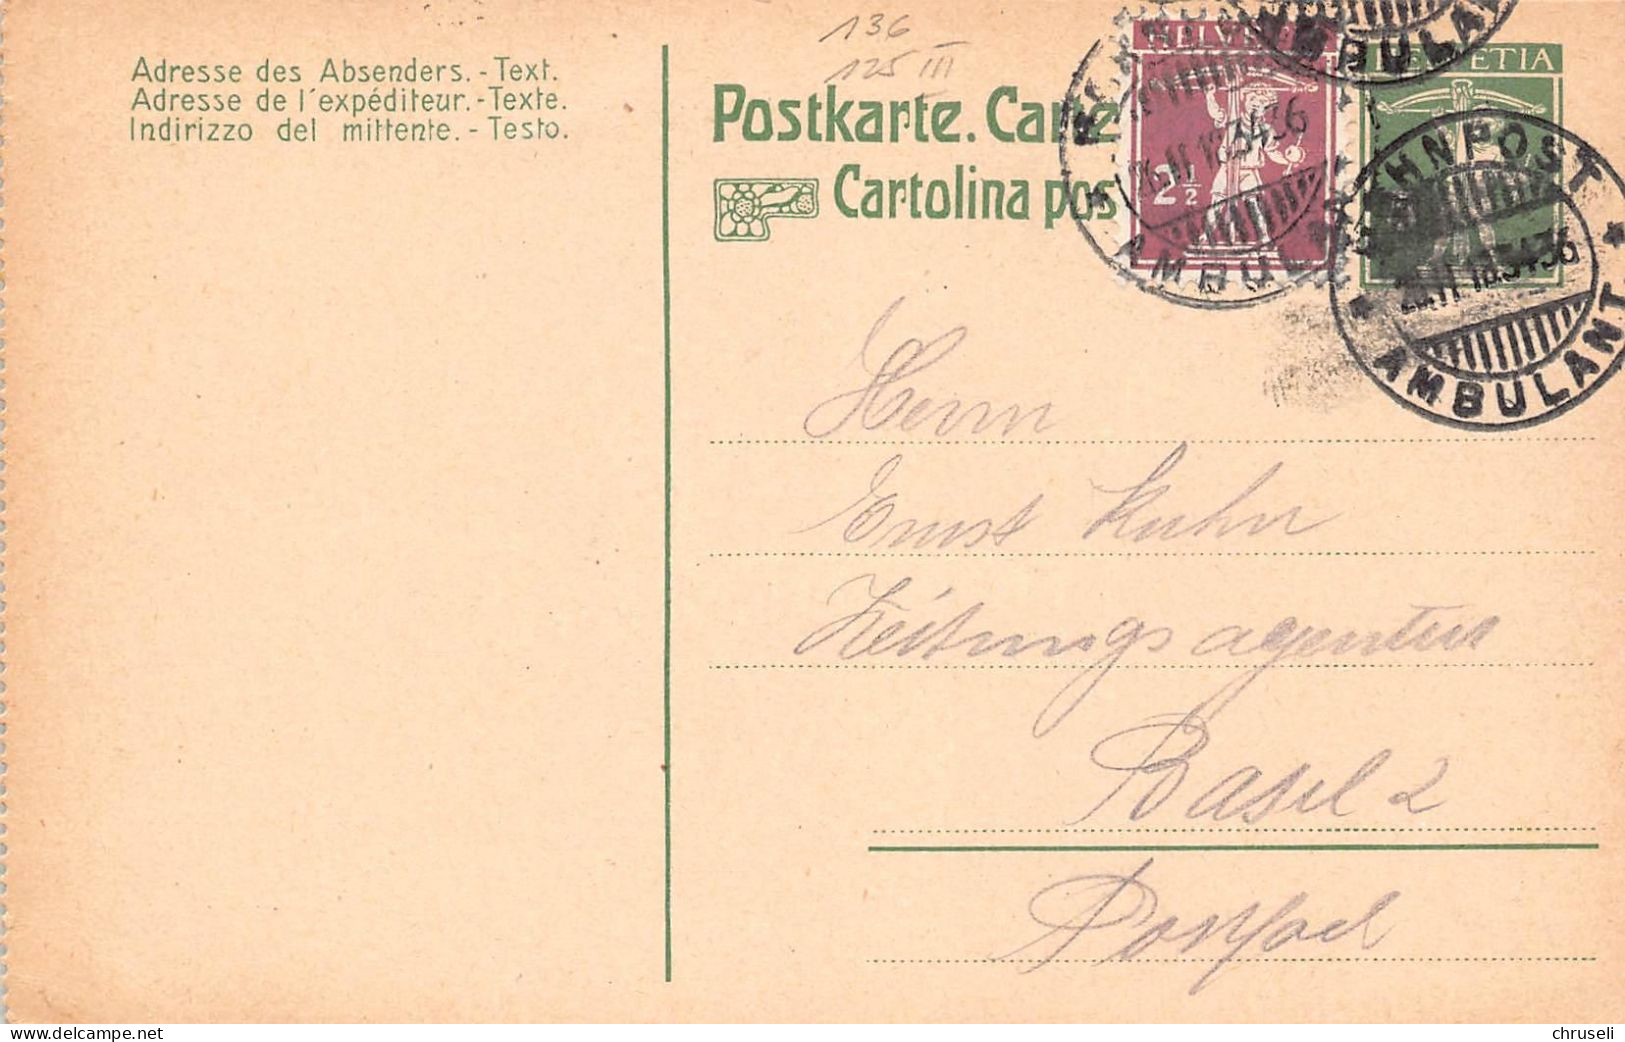 136
125 III
Adresse des Absenders. - Text.
Adresse de l'expéditeur. - Texte.
Indirizzo del mittente. - Testo.
Postkarte. Carte
Cartolina pos
HELVETIA
2½
BAHNPOST
AMBULANT
AMBULANT
Herrn
Ernst Kuhn
Zeitungsagentur
Basel 2
Postfach
www.delcampe.net
chruseli